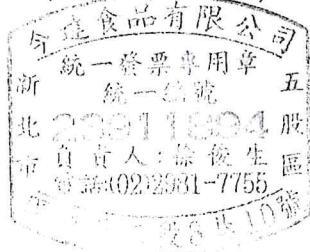 今達食品有限公司
統一發票專用章
統一編號
23911894
負責人:徐俊生
電話:(02)2981-7755
新北市
五股區
段8巷10號